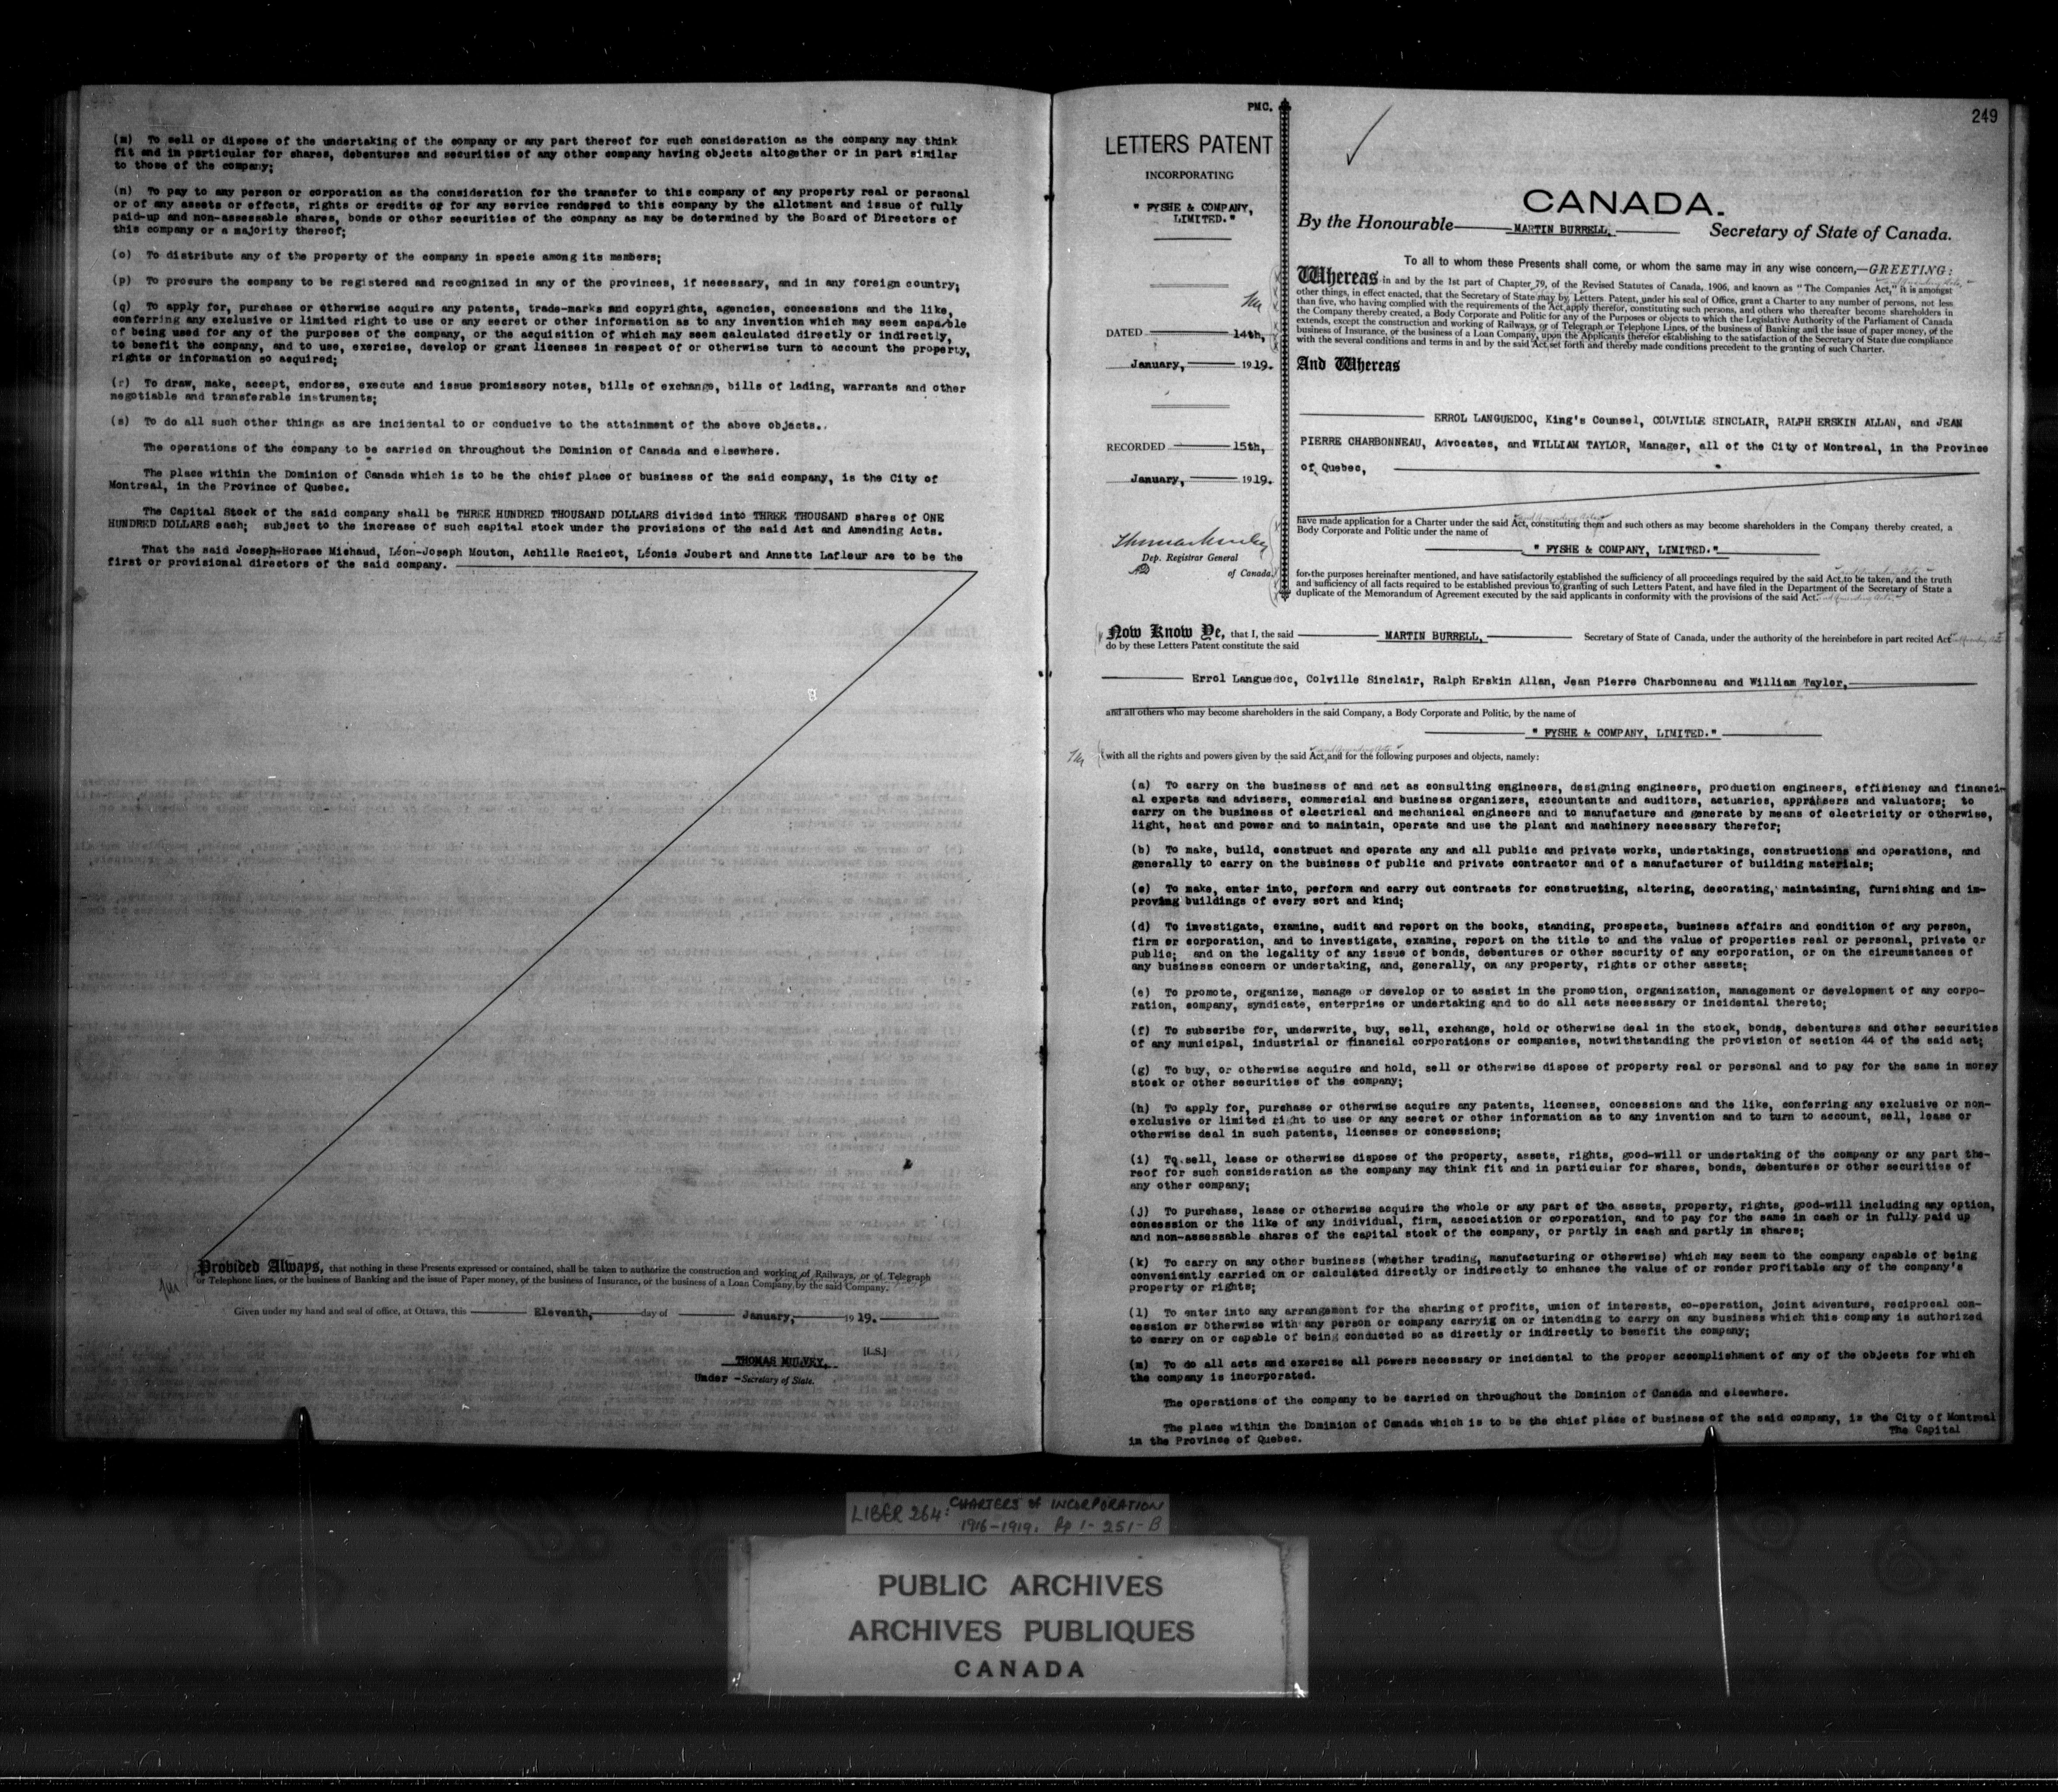 (m) To sell or dispose of the undertaking of the company or any part thereof for such consideration as the company may think
fit and in particular for shares, debentures and securities of any other company having objects altogether or in part similar
to those of the company;
(n) To pay to any person or corporation as the consideration for the transfer to this company of any property real or personal
or of any assets or effects, rights or credits or for any service rendered to this company by the allotment and issue of fully
paid-up and non-assessable shares, bonds or other securities of the company as may be determined by the Board of Directors of
this company or a majority thereof;
(o) To distribute any of the property of the company in specie among its members;
(p) To procure the company to be registered and recognized in any of the provinces, if necessary, and in any foreign country;
(q) To apply for, purchase or otherwise acquire any patents, trade-marks and copyrights, agencies, concessions and the like,
conferring any exclusive or limited right to use or any secret or other information as to any invention which may seem capable
of being used for any of the purposes of the company, or the acquisition of which may seem calculated directly or indirectly,
to benefit the company, and to use, exercise, develop or grant licenses in respect of or otherwise turn to account the property,
rights or information so acquired;
(r) To draw, make, accept, endorse, execute and issue promissory notes, bills of exchange, bills of lading, warrants and other
negotiable and transferable instruments;
(s) To do all such other things as are incidental to or conducive to the attainment of the above objects..
The operations of the company to be carried on throughout the Dominion of Canada and elsewhere.
The place within the Dominion of Canada which is to be the chief place of business of the said company, is the City of
Montreal, in the Province of Quebec.
The Capital Stock of the said company shall be THREE HUNDRED THOUSAND DOLLARS divided into THREE THOUSAND shares of ONE
HUNDRED DOLLARS each; subject to the increase of such capital stock under the provisions of the said Act and Amending Acts.
That the said Joseph-Horace Michaud, Léon-Joseph Mouton, Achille Racicot, Léonie Joubert and Annette Lafleur are to be the
first or provisional directors of the said company.
Provided Always, that nothing in these Presents expressed or contained, shall be taken to authorize the construction and working of Railways, or of Telegraph
or Telephone lines, or the business of Banking and the issue of Paper money, or the business of Insurance, or the business of a Loan Company, by the said Company.
Given under my hand and seal of office, at Ottawa, this Eleventh, day of January, 1919.
[L.S.]
THOMAS MULVEY,
Under-Secretary of State.
PMC.
LETTERS PATENT
INCORPORATING
" FYSHE & COMPANY,
LIMITED."
DATED 14th,
January, 1919.
RECORDED 15th,
January, 1919.
Thomas Mulvey
Dep. Registrar General
of Canada.
249
CANADA.
By the Honourable MARTIN BURRELL, Secretary of State of Canada.
To all to whom these Presents shall come, or whom the same may in any wise concern,—GREETING:
Whereas in and by the 1st part of Chapter 79, of the Revised Statutes of Canada, 1906, and known as "The Companies Act," it is amongst
other things, in effect enacted, that the Secretary of State may by Letters Patent, under his seal of Office, grant a Charter to any number of persons, not less
than five, who having complied with the requirements of the Act, apply therefor, constituting such persons, and others who thereafter become shareholders in
the Company thereby created, a Body Corporate and Politic for any of the Purposes or objects to which the Legislative Authority of the Parliament of Canada
extends, except the construction and working of Railways, or of Telegraph or Telephone Lines, or the business of Banking and the issue of paper money, of the
business of Insurance, or the business of a Loan Company, upon the Applicants therefor establishing to the satisfaction of the Secretary of State due compliance
with the several conditions and terms in and by the said Act, set forth and thereby made conditions precedent to the granting of such Charter.
And Whereas
ERROL LANGUEDOC, King's Counsel, COLVILLE SINCLAIR, RALPH ERSKIN ALLAN, and JEAN
PIERRE CHARBONNEAU, Advocates, and WILLIAM TAYLOR, Manager, all of the City of Montreal, in the Province
of Quebec,
have made application for a Charter under the said Act, constituting them and such others as may become shareholders in the Company thereby created, a
Body Corporate and Politic under the name of
" FYSHE & COMPANY, LIMITED."
for the purposes hereinafter mentioned, and have satisfactorily established the sufficiency of all proceedings required by the said Act, to be taken, and the truth
and sufficiency of all facts required to be established previous to granting of such Letters Patent, and have filed in the Department of the Secretary of State a
duplicate of the Memorandum of Agreement executed by the said applicants in conformity with the provisions of the said Act.
Now Know Ye, that I, the said MARTIN BURRELL, Secretary of State of Canada, under the authority of the hereinbefore in part recited Act
do by these Letters Patent constitute the said
Errol Languedoc, Colville Sinclair, Ralph Erskin Allan, Jean Pierre Charbonneau and William Taylor,
and all others who may become shareholders in the said Company, a Body Corporate and Politic, by the name of
" FYSHE & COMPANY, LIMITED."
with all the rights and powers given by the said Act, and for the following purposes and objects, namely:
(a) To carry on the business of and act as consulting engineers, designing engineers, production engineers, efficiency and financi-
al experts and advisers, commercial and business organizers, accountants and auditors, actuaries, appraisers and valuators; to
carry on the business of electrical and mechanical engineers and to manufacture and generate by means of electricity or otherwise,
light, heat and power and to maintain, operate and use the plant and machinery necessary therefor;
(b) To make, build, construct and operate any and all public and private works, undertakings, constructions and operations, and
generally to carry on the business of public and private contractor and of a manufacturer of building materials;
(c) To make, enter into, perform and carry out contracts for constructing, altering, decorating, maintaining, furnishing and im-
proving buildings of every sort and kind;
(d) To investigate, examine, audit and report on the books, standing, prospects, business affairs and condition of any person,
firm or corporation, and to investigate, examine, report on the title to and the value of properties real or personal, private or
public; and on the legality of any issue of bonds, debentures or other security of any corporation, or on the circumstances of
any business concern or undertaking, and, generally, on any property, rights or other assets;
(e) To promote, organize, manage or develop or to assist in the promotion, organization, management or development of any corpo-
ration, company, syndicate, enterprise or undertaking and to do all acts necessary or incidental thereto;
(f) To subscribe for, underwrite, buy, sell, exchange, hold or otherwise deal in the stock, bonds, debentures and other securities
of any municipal, industrial or financial corporations or companies, notwithstanding the provision of section 44 of the said act;
(g) To buy, or otherwise acquire and hold, sell or otherwise dispose of property real or personal and to pay for the same in money
stock or other securities of the company;
(h) To apply for, purchase or otherwise acquire any patents, licenses, concessions and the like, conferring any exclusive or non-
exclusive or limited right to use or any secret or other information as to any invention and to turn to account, sell, lease or
otherwise deal in such patents, licenses or concessions;
(i) To sell, lease or otherwise dispose of the property, assets, rights, good-will or undertaking of the company or any part the-
reof for such consideration as the company may think fit and in particular for shares, bonds, debentures or other securities of
any other company;
(j) To purchase, lease or otherwise acquire the whole or any part of the assets, property, rights, good-will including any option,
concession or the like of any individual, firm, association or corporation, and to pay for the same in cash or in fully paid up
and non-assessable shares of the capital stock of the company, or partly in cash and partly in shares;
(k) To carry on any other business (whether trading, manufacturing or otherwise) which may seem to the company capable of being
conveniently carried on or calculated directly or indirectly to enhance the value of or render profitable any of the company's
property or rights;
(l) To enter into any arrangement for the sharing of profits, union of interests, co-operation, joint adventure, reciprocal con-
cession or otherwise with any person or company carryig on or intending to carry on any business which this company is authorized
to carry on or capable of being conducted so as directly or indirectly to benefit the company;
(m) To do all acts and exercise all powers necessary or incidental to the proper accomplishment of any of the objects for which
the company is incorporated.
The operations of the company to be carried on throughout the Dominion of Canada and elsewhere.
The place within the Dominion of Canada which is to be the chief place of business of the said company, is the City of Montreal
in the Province of Quebec.
The Capital
LIBER 264: CHARTERS of INCORPORATION
1916-1919. Pp 1-251-B
PUBLIC ARCHIVES
ARCHIVES PUBLIQUES
CANADA